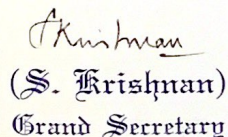 SKrishnan
(S. Krishnan)
Grand Secretary